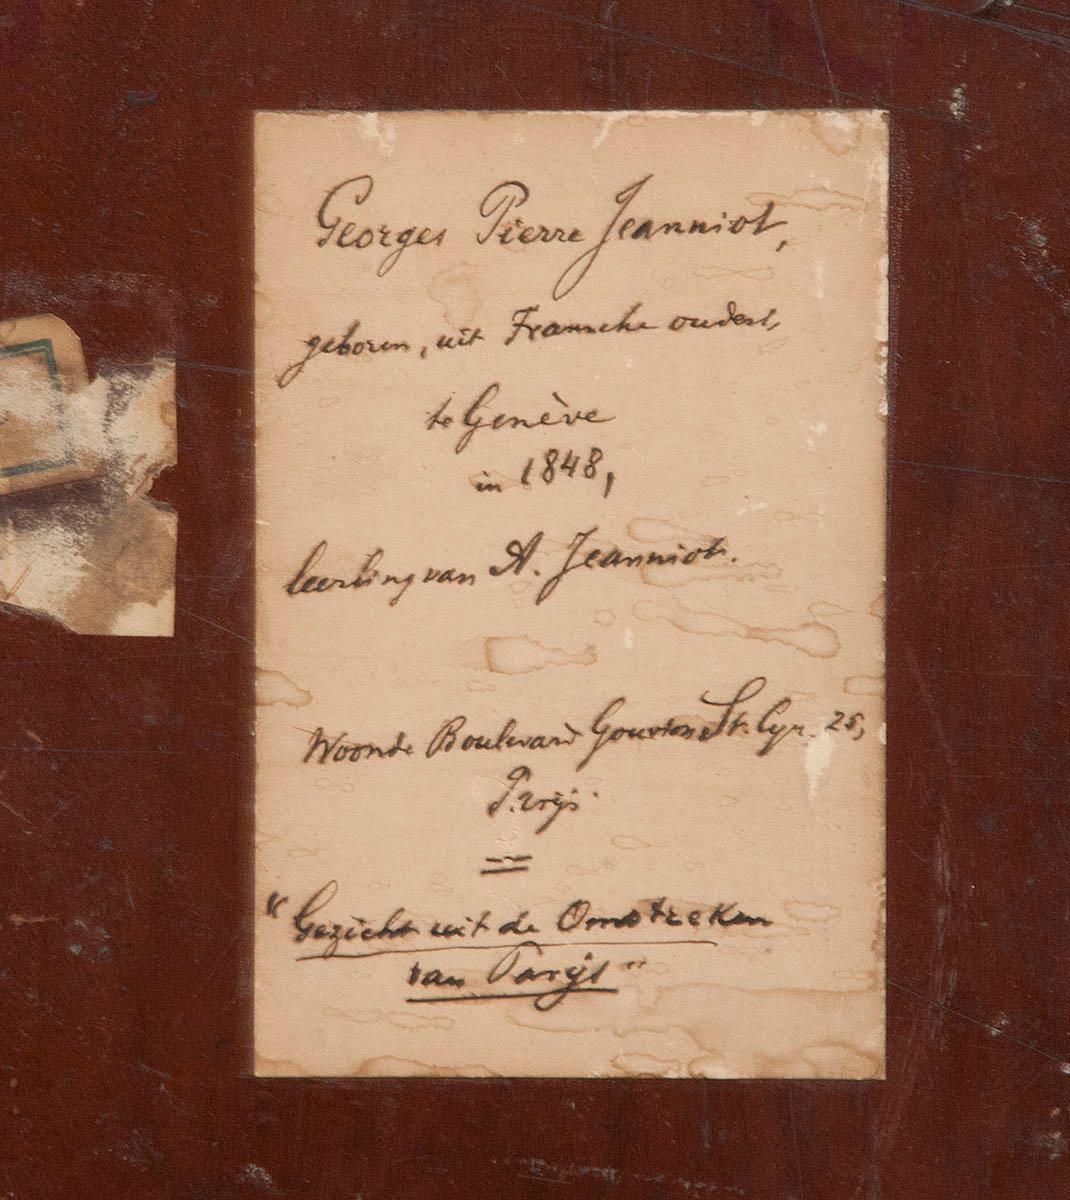 Georges Pierre Jeanniot,
geboren, uit Fransche ouders,
te Genève
in 1848,
leerling van A. Jeanniot.
Woonde Boulevard Gouvion St. Cyr. 25,
Parijs.
=
"Gezicht uit de Omstreken
van Parijs"